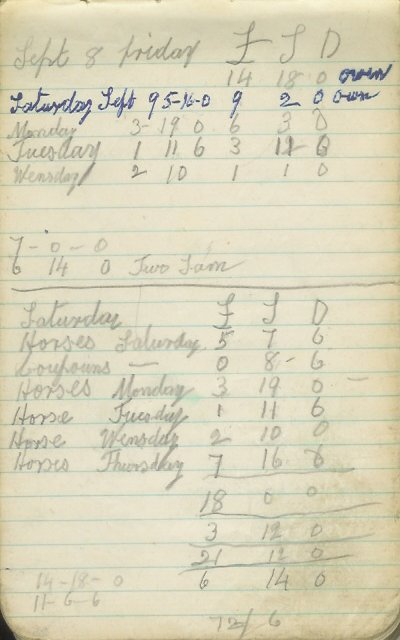 Sept 8 friday £ S D
14 18 0 owen
Saturday Sept 9 5-16-0 9 2 0 own
Monday 3- 19 0 6 3 0
Tuesday 1 11 6 3 12 6
Wensday 2 10 1 1 0
7 - 0 - 0
6 14 0 Two Sam
Saturday £ S D
Horses Saturday 5 7 6
Coupouns — 0 8 - 6
Horses Monday 3 19 0 —
Horse Tuesday 1 11 6
Horse Wensday 2 10 0
Horses Thursday 7 16 6
18 0 0
3 12 0
21 12 0
14-18- 0 6 14 0
11-6-6
72/ 6